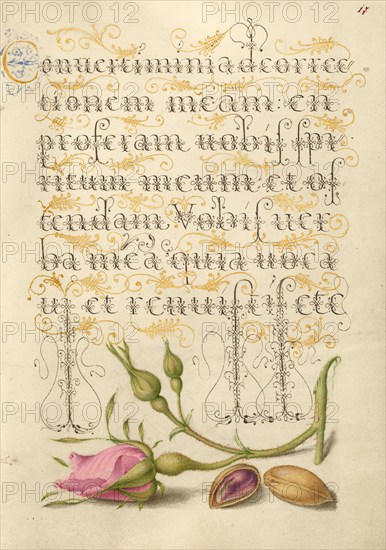 17
Convertiminiadcorrec
tionem meam: en
proferam vobis spi
ritum meum: et os
tendam Vobis ver
ba mea: quia voca
vi et renuistis etc